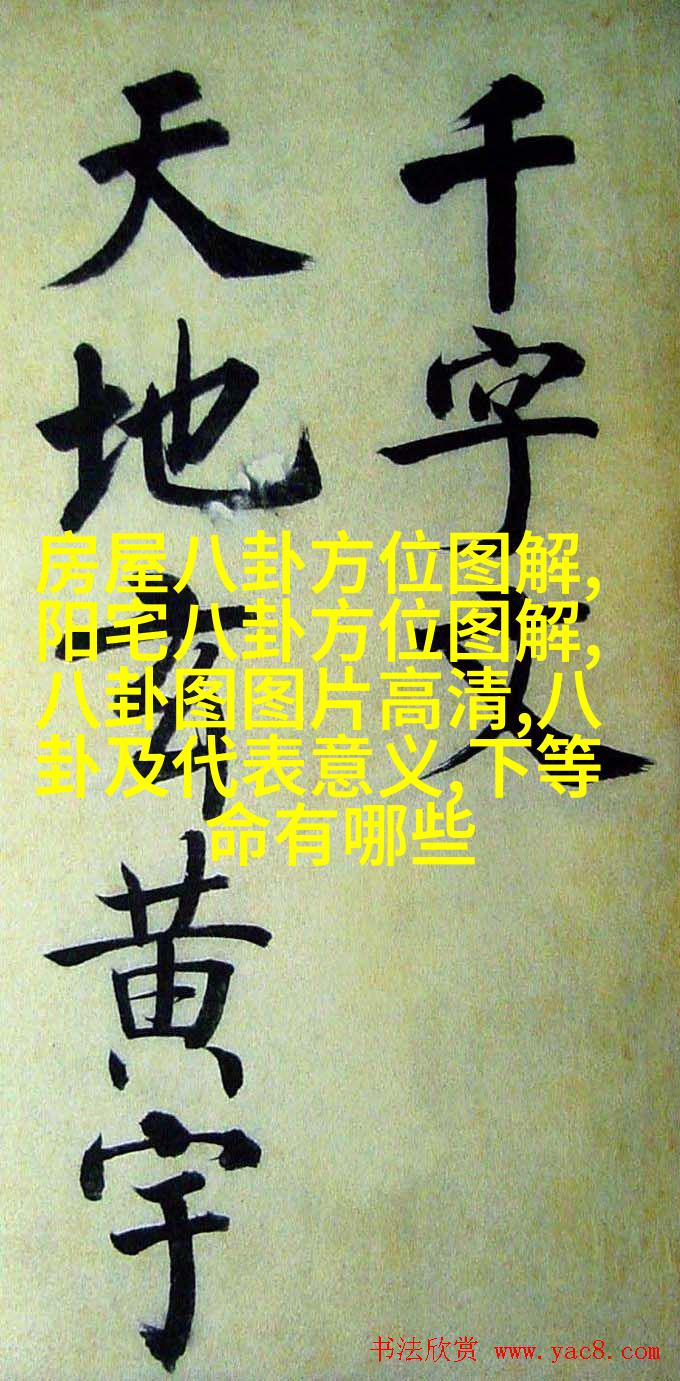 千字文
天地玄黄宇
房屋八卦方位图解,
阳宅八卦方位图解,
八卦图图片高清,八
卦及代表意义,下等
命有哪些
书法欣赏 www.yac8.com